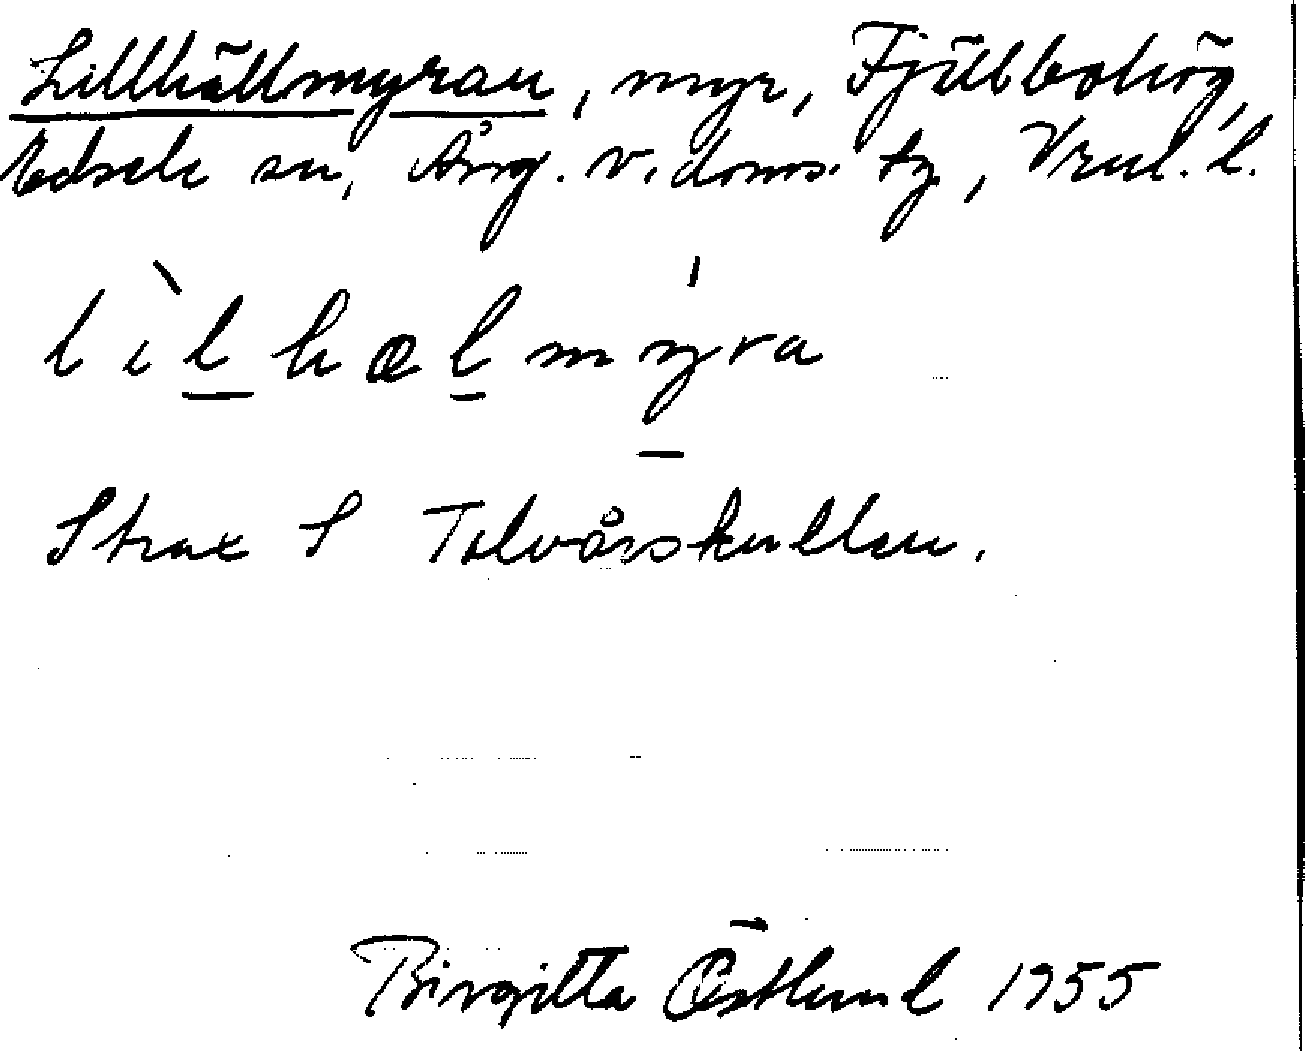 Lillhällmyran, myr, Fjällbohög,
Edsele sn, Ång. v. doms. tg, Vrnl. l.
lìlhælmýra
Strax S Tolvårskullen.
Birgitta Östlund 1955